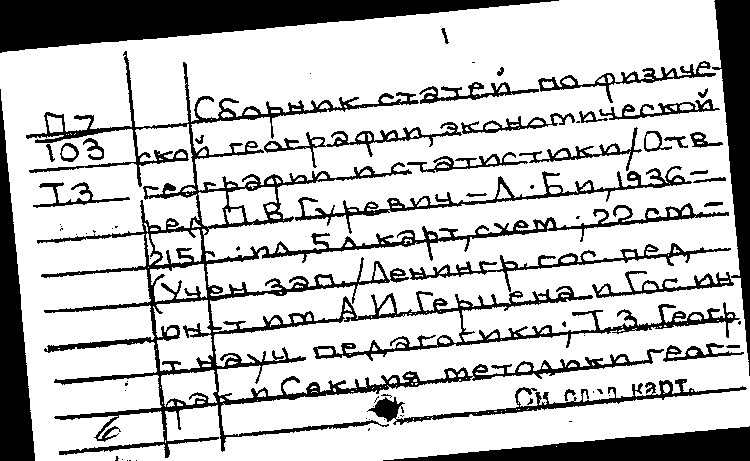 П7
103
Т.3
Сборник статей по физиче-
ской географии, экономической
географии и статистики/Отв
ред П.В. Гуревич. – Л.: Б.и, 1936 –
215с.: ил, 5 л. карт, схем.; 22 см. –
(Учен зап. / Ленингр. гос. пед.
ин-т им А И. Герцена и Гос ин-
т науч педагогики; Т. 3. Геогр.
фак и Секция методики геог-
См след. карт.
6